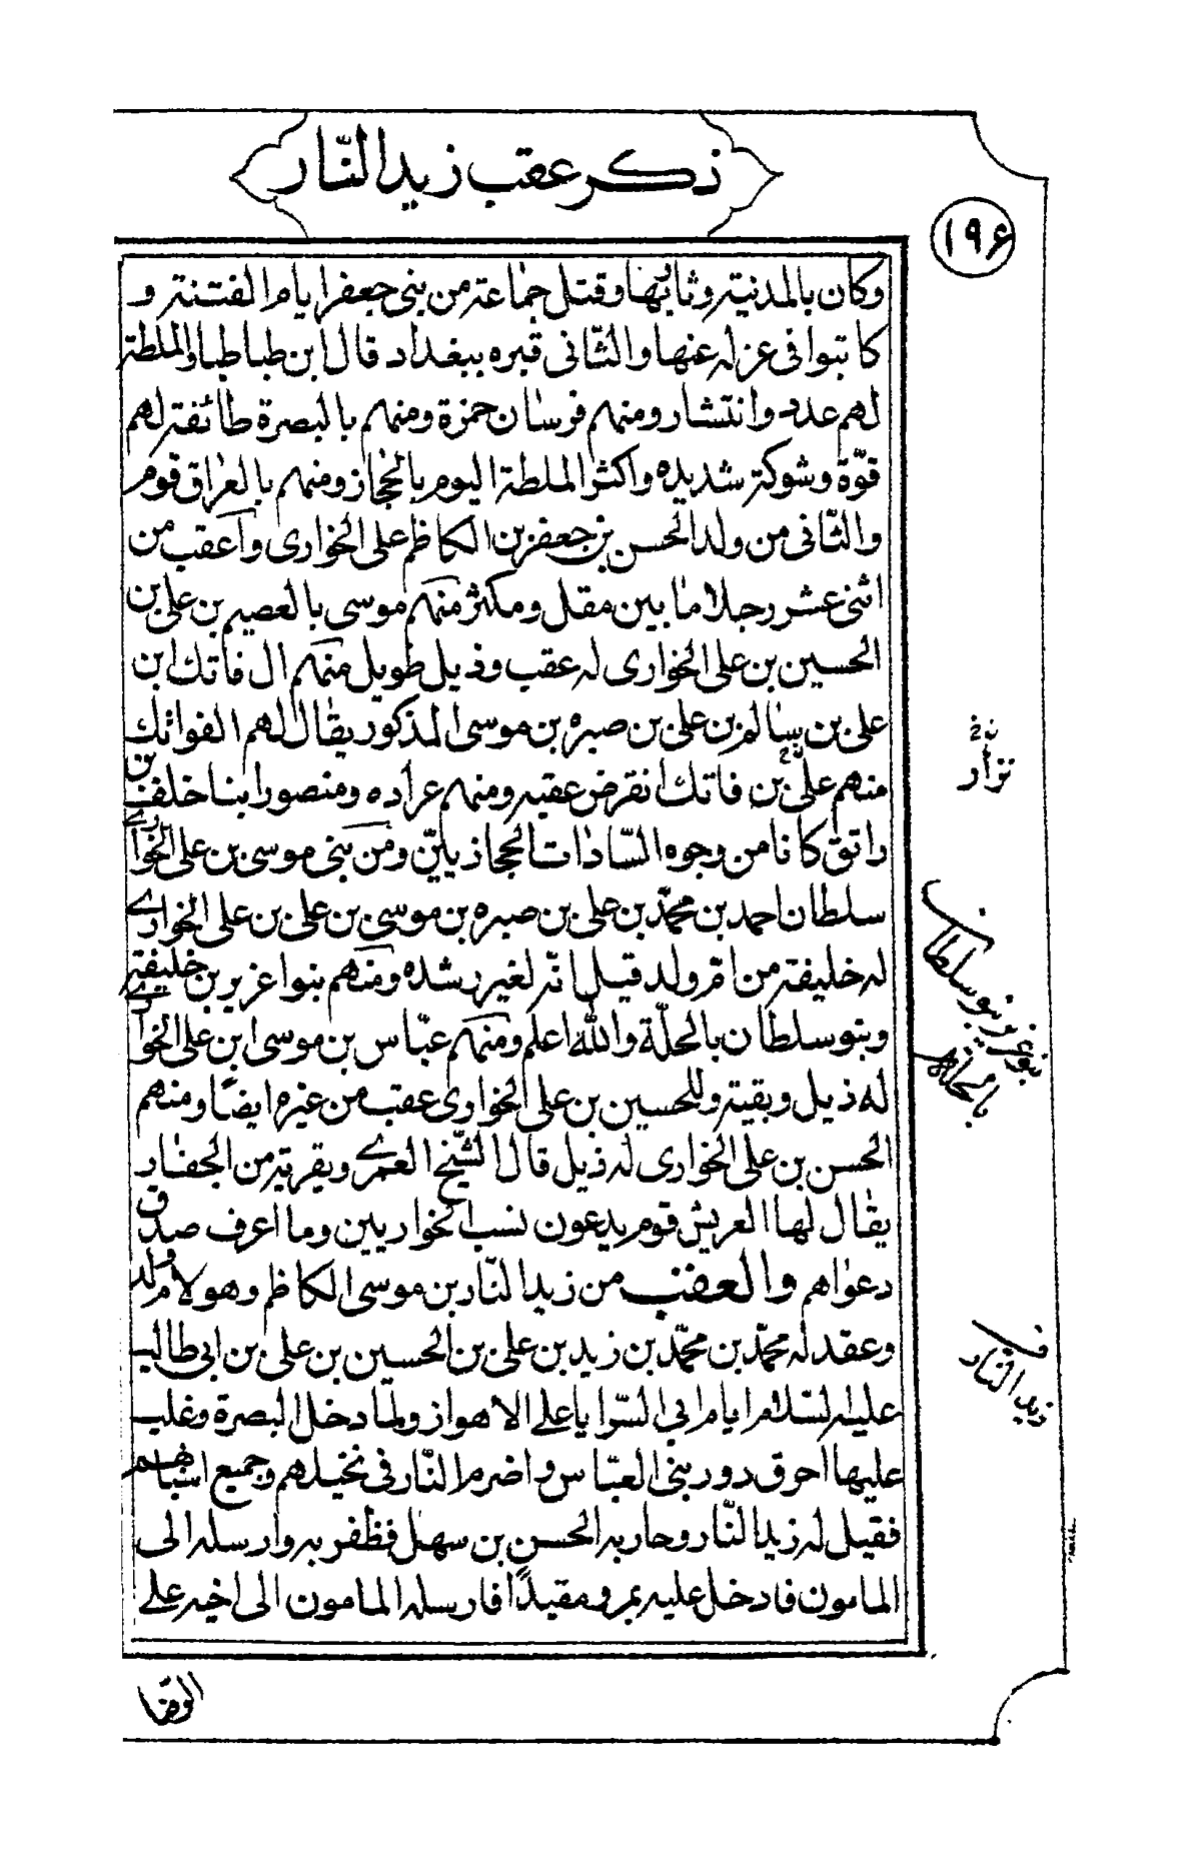 ذكر عقب زيد النّار
١٩۶
وكان بالمدنية وثابها وقتل جماعة من بنى جعفر ايام الفتنة و
كاتبوا فى عزله عنها والثّانى قبره ببغداد قال ابن طباطبا والملطة
لهم عدد وانتشار ومنهم فرسان حمزة ومنهم بالبصرة طائفة لهم
قوّة وشوكة شديده واكثر الملطة اليوم بالحجاز ومنهم بالعراق قوم
والثّانى من ولد الحسن بن جعفر بن الكاظم على الخوارى وأعقب من
اثنى عشر رجلا ما بين مقل ومكثر منهم موسى بالعصيم بن على بن
الحسين بن على الخوارى له عقب وذيل طويل منهم ال فاتك ابن
على بن سالم بن على بن صبره بن موسى المذكور يقال لهم الفواتك
منهم على بن فاتك انقرض عقبه ومنهم عراده ومنصور ابنا خلف بن
راتق كانا من وجوه السّادات الحجازيّين ومن بنى موسى بن على الخوارى
سلطان احمد بن محمّد بن على بن صبره بن موسى بن على بن على الخوارے
له خليفة من امّ ولد قيل انّه لغير رشده ومنهم بنوا عزيز بن خليفة
وبنو سلطان بالحلّة والله اعلم ومنهم عبّاس بن موسى ابن على الخوارے
له ذيل وبقية وللحسين بن على الخوارى عقب من غيره ايضًا ومنهم
الحسن بن على الخوارى له ذيل قال الشّيخ العمرے وبقرية من الجفار
يقال لها العريش قوم يدعون نسب الخواريين وما اعرف صدق
دعواهم والعقب من زيد النّار بن موسى الكاظم وهو لام ولد
وعقد له محمّد بن محمّد بن زيد بن على بن الحسين بن على بن ابى طالب
عليه السّلام ايام ابى السّرايا على الاهواز ولما دخل البصرة وغلب
عليها احرق دور بنى العبّاس واضرم النّار فى نخيلهم وجميع اسبابهم
فقيل له زيد النّار وحاربه الحسن بن سهل فظفر به وارسله الى
المامون فادخل عليه بمرو مقيدًا فارسله المامون الى اخيه على
نزار
بنو عزيز بنو سلطان
بالحلة
زيد النّار
الرضا